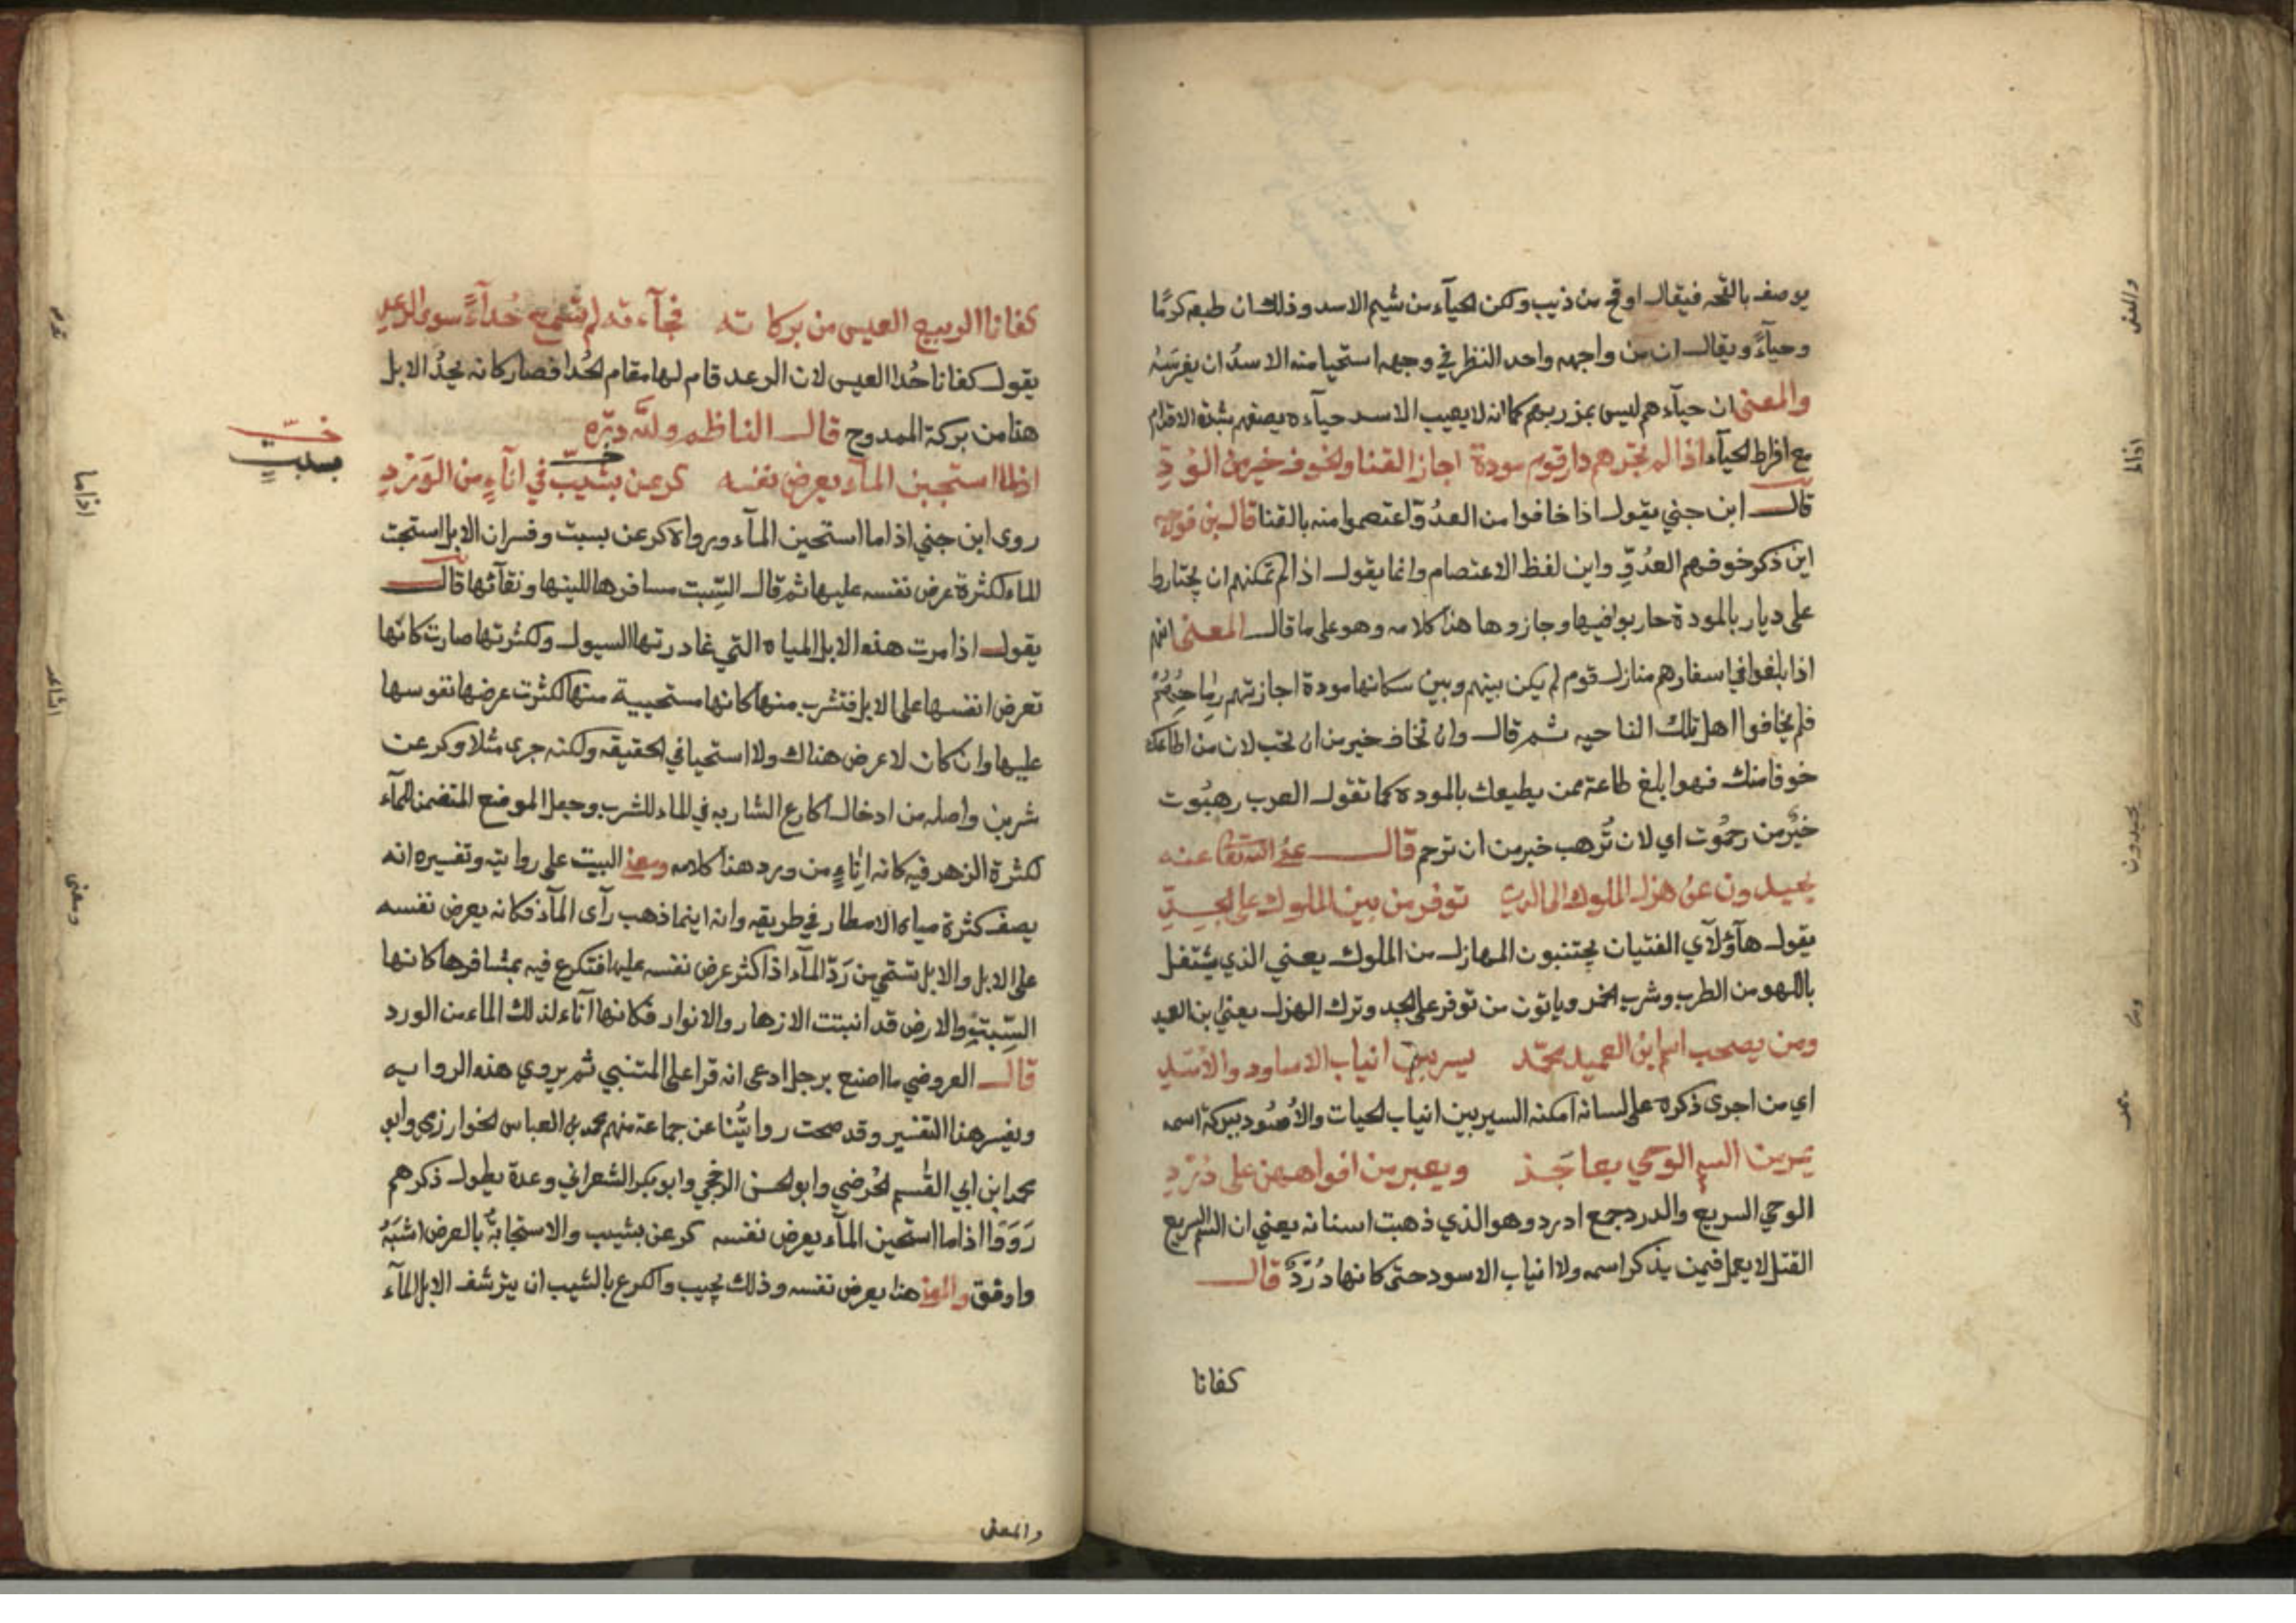 يوصف بالقحه فيقال اوقح من ذيب ولكن الحيآء من شيم الاسد وذلك ان طبعه كرمًا
وحيآءً ويقال ان من واجهه واحد النظر في وجهه استحيا منه الاسدُ ان يفرسَه
والمعنى ان حيآءهم ليس بمزر بهم كما انه لا يعيب الاسد حيآءه يصفهم بشدة الاقدام
مع افراط الحيآء اذا لم تجزهم دار قوم مودة اجاز القنا والخوف خير من الوُدِّ
قال ابن جني يقول اذا خافوا من العدُوّ اعتصموا منه بالقنا قال بن فورجه
اين ذكر خوفهم العدُوِّ واين لفظ الاعتصام وانما يقول اذا لم تمكنهم ان يجتازوا
على ديار بالمودة حاربوا فيها وجازوها هذا كلامه وهو على ما قال المعنى انهم
اذا بلغوا في اسفارهم منازل قوم لم يكن بينهم وبين سكانها مودة اجازتهم رِماحُهُمْ
فلم يخافوا اهل تلك الناحيه ثم قال وان تخاف خير من ان تحب لان من اطاعك
خوفا منك فهو ابلغ طاعة ممن يطيعك بالموده كما تقول العرب رهبُوت
خيرٌ من رحمُوت اي لان تُرهب خير من ان ترحم قال عفى الله تعا عنه
يحيدون عن هزل الملوك الى الذي توفر من بين الملوك على الجـدِّ
يقول هآؤلآي الفتيان يجتنبون المهازل من الملوك يعني الذي يشتغل
باللهو من الطرب وشرب الخمر وياتون من توفر على الجد وترك الهزل يعني بن العميد
ومن يصحب اسم ابن العميد محمّد يسر بين انياب الاساود والاُسْدِ
اي من اجرى ذكره على لسانه امكنه السير بين انياب الحيات والاُسُود ببركة اسمه
يمر من السم الوحي بعاجَـز ويعبر من افواههن على دُرْدِ
الوحي السريع والدرد جمع ادرد وهو الذي ذهبت اسنانه يعني ان السم السريع
القتل لا يعمل فيمن يذكر اسمه ولا انياب الاسود حتى كانها دُرْدٌ قال
كفانا
كفانا الربيع العيس من بركاته فجآءته لم تسمع حُدآءً سوى الرعدِ
يقول كفانا حُدا العيس لان الرعد قام لها مقام الحُدا فصار كانه يحدُ الابل
هذا من بركة الممدوح قال الناظم ولله درّه
اذا ما استجبن المآء يعرض نفسه كرعن بشيب في انآءٍ من الوَرْدِ
روى ابن جني اذا ما استحين المآء ورواه كرعن بسبت وفسر ان الابل استحيت
الماء لكثرة عرض نفسه عليها ثم قال السِّبت مسافرها للينها ونقآئها قال
يقول اذا مرت هذه الابل المياه التي غادرتها السيول ولكثرتها صارت كانّها
تعرض انفسها على الابل فتشرب منها كانها مستحيية منها لكثرت عرضها نفوسها
عليها وان كان لا عرض هناك ولا استحيا في الحقيقه ولكنه جرى مثلا وكرعت
شربن واصله من ادخال اكارع الشاربه في الماء للشرب وجعل الموضع المتضمن للمآء
لكثرة الزهر فيه كانه اِنآءٍ من ورد هذا كلامه ومعنى البيت على روايته وتفسيره انه
يصف كثرة مياه الامطار في طريقه وانه اينما ذهب رآى المآء فكانه يعرض نفسه
على الابل والابل تستحي من رَدّ المآء اذا كثر عرض نفسه عليها فتكرع فيه بمشافرها كانها
السِّبتِ والارض قد انبتت الازهار والانوار فكانها آناء لذلك الماء من الورد
قال العروضي ما اصنع برجل ادعى انه قرا على المتنبي ثم يروي هذه الروايه
ويفسر هذا التفسير وقد صحت روايتُنا عن جماعة منهم محمد بن العباس الخوارزمي وابو
محمد ابن ابي القسم الحُرضي وابو الحسن الرخجي وابو بكر الشعراني وعدة يطول ذكرهم
رَوَوَا اذا ما استجبن المآء يعرض نفسه كرعن بشيب والاستجابةُ بالعرض اشبَهُ
واوفق والمعنى هذا يعرض نفسه وذلك يجيب والكرع بالشيب ان يترشف الابل المآء
بسبتٍ
والمعنى
اذاما
ومعنى
يحيدون